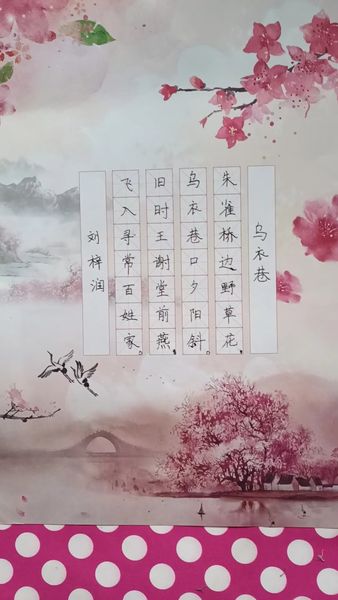 乌衣巷
朱雀桥边野草花，
乌衣巷口夕阳斜。
旧时王谢堂前燕，
飞入寻常百姓家。
刘梓润